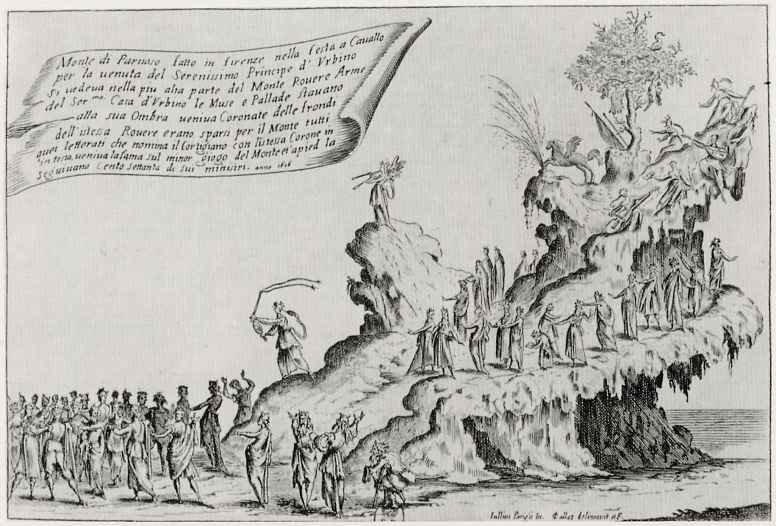 Monte di Parnaso fatto in firenze nella festa a Cavallo
per la venuta del Serenissimo Principe d' Vrbino
Si vedeva nella piu alta parte del Monte Rovere Arme
del Ser.mo Casa d'Vrbino le Muse e Pallade stavano
alla sua Ombra veniva Coronate delle frondi
dell'istessa Rovere erano sparsi per il Monte tutti
quei letterati che nomina il Cortigiano con l'istessa Corone in
testa, veniva la fama sul minor giogo del Monte et apied la
seguivano Cento settanta di sui ministri. anno 1616
Iullius Parigii In. Callot delineavit et F.